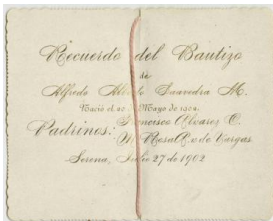 Recuerdo del Bautizo
de
Alfredo Saavedra M.
Nació el Mayo de
Padrinos: Francisco Alvarez C.
Rosa R. v. de Vargas
Serena, Julio 27 de 1902